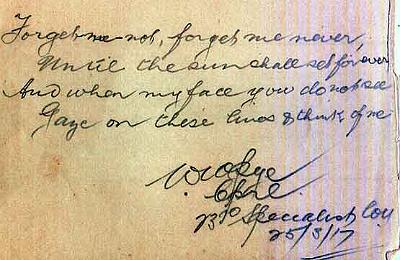 Forget me-not, forget me never,
Until the sun shall set forever
And when my face you do not see
Gaze on these lines & think of me
Cpl.
Specialist Coy
25/3/17